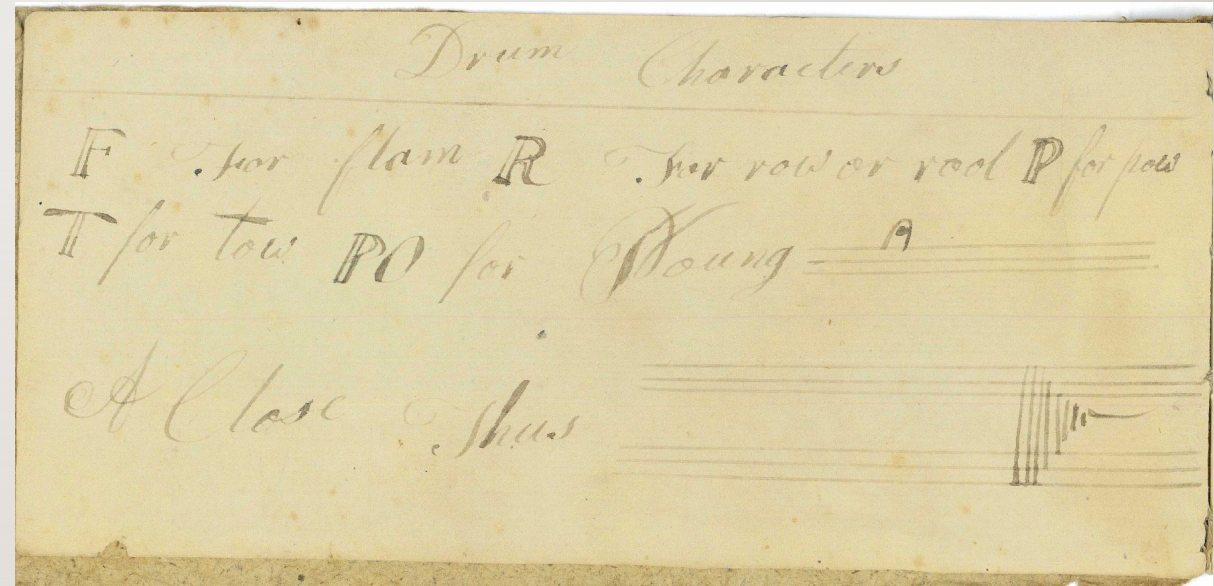 Drum Characters
F For flam R For row or rool P for pow
T for tow PO for Poung A
A Close Thus